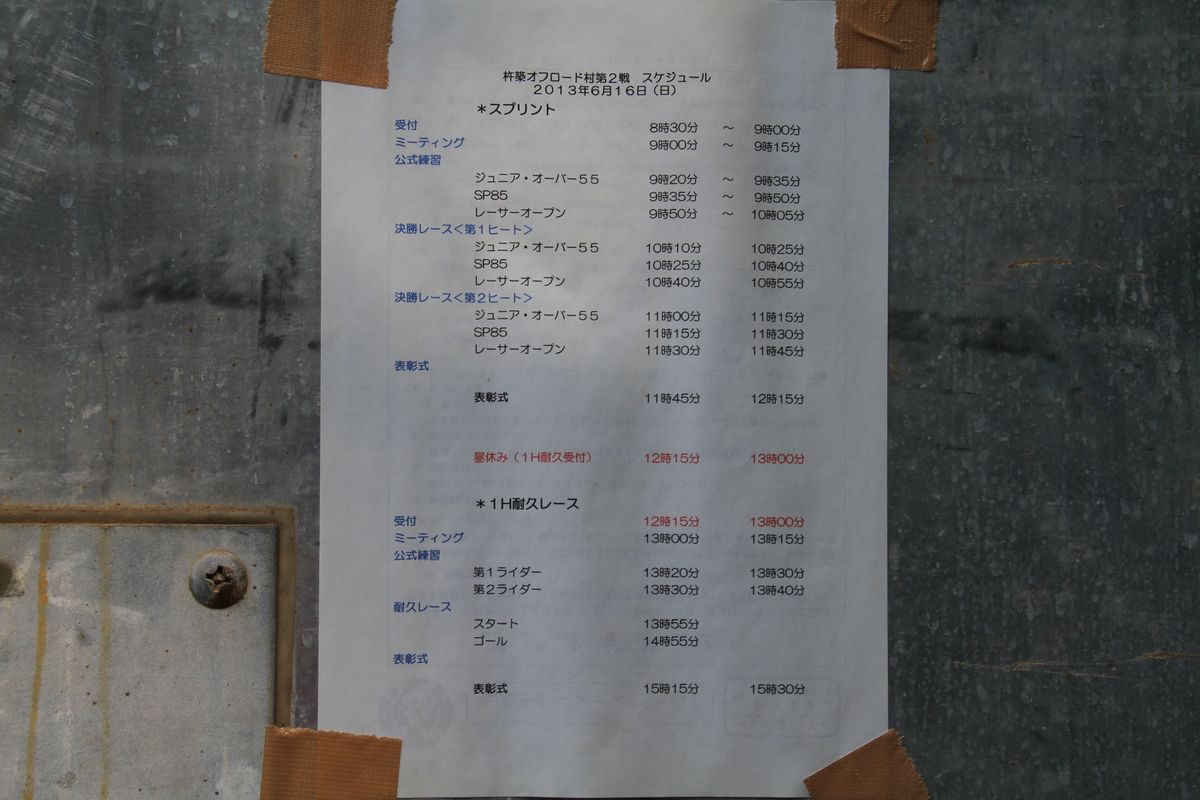 杵築オフロード村第2戦　スケジュール
2013年6月16日（日）
＊スプリント
受付 8時30分 ～ 9時00分
ミーティング 9時00分 ～ 9時15分
公式練習
ジュニア・オーバー55 9時20分 ～ 9時35分
SP85 9時35分 ～ 9時50分
レーサーオープン 9時50分 ～ 10時05分
決勝レース＜第1ヒート＞
ジュニア・オーバー55 10時10分 10時25分
SP85 10時25分 10時40分
レーサーオープン 10時40分 10時55分
決勝レース＜第2ヒート＞
ジュニア・オーバー55 11時00分 11時15分
SP85 11時15分 11時30分
レーサーオープン 11時30分 11時45分
表彰式
表彰式 11時45分 12時15分
昼休み（1H耐久受付） 12時15分 13時00分
＊1H耐久レース
受付 12時15分 13時00分
ミーティング 13時00分 13時15分
公式練習
第1ライダー 13時20分 13時30分
第2ライダー 13時30分 13時40分
耐久レース
スタート 13時55分
ゴール 14時55分
表彰式
表彰式 15時15分 15時30分